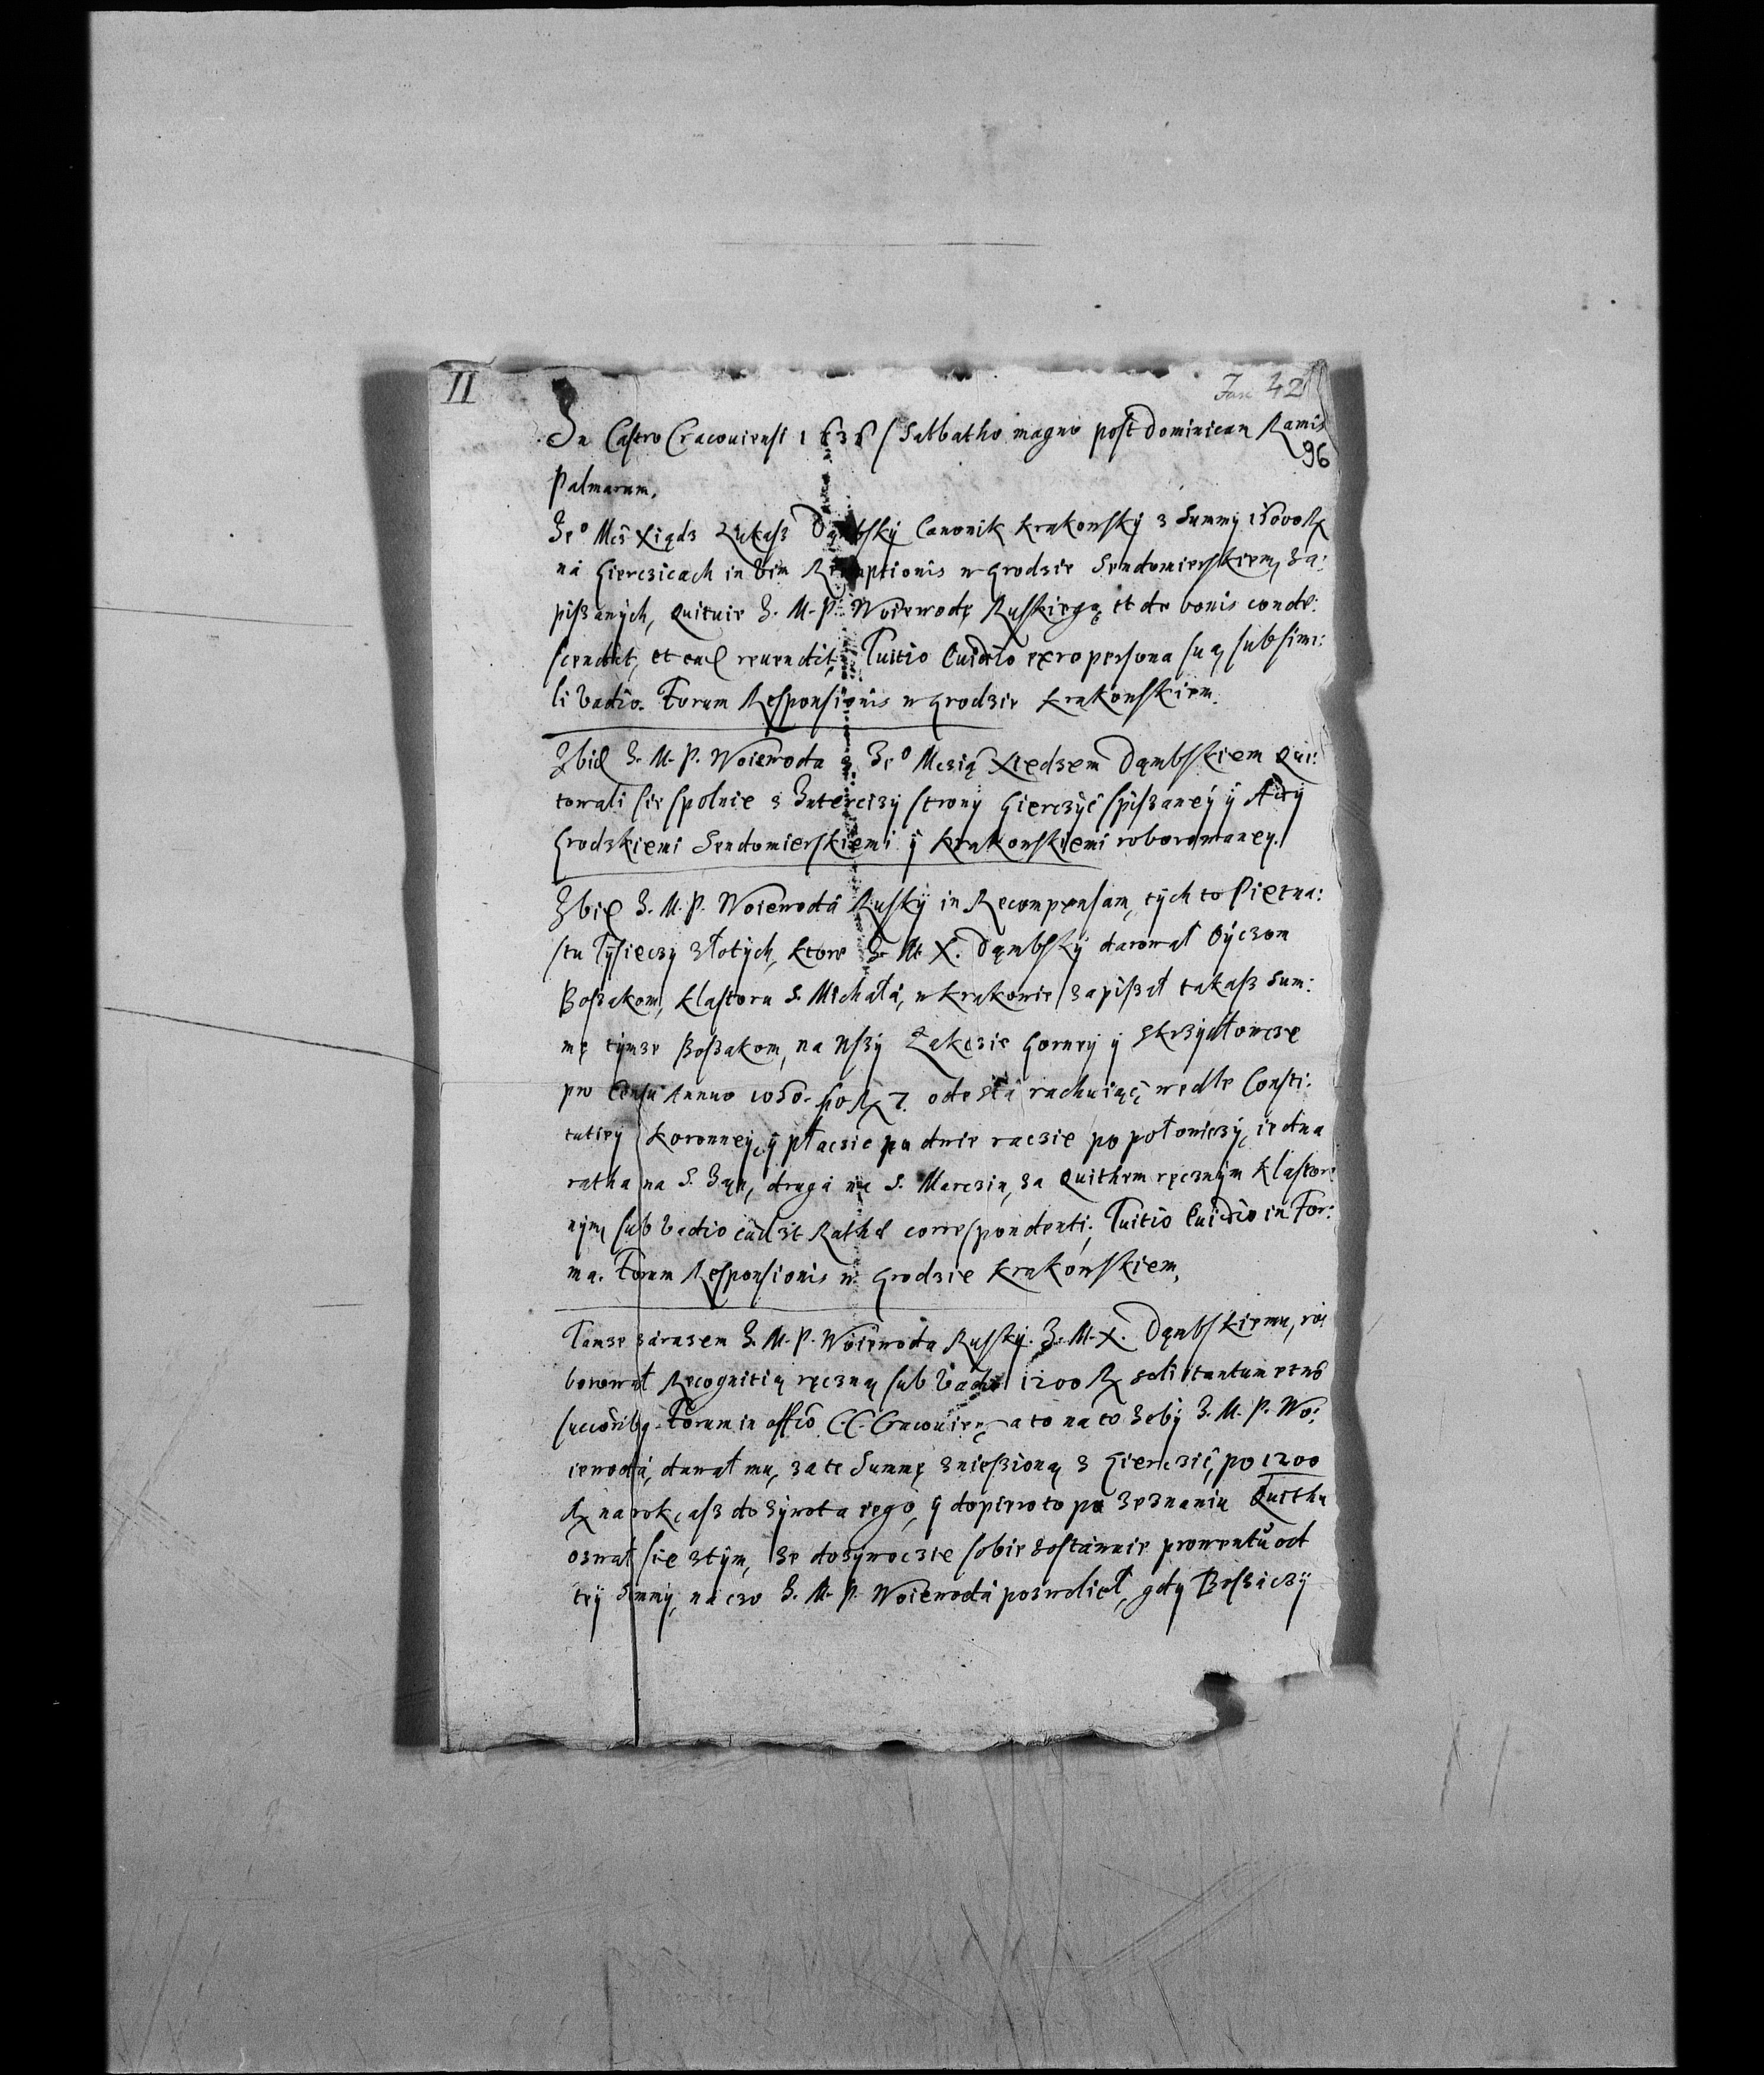 II
Fasc 42
In Castro Cracouiensi 1636 Sabbatho magno post Dominicam Ramis
96
Palmarum.
Je⁰ Mć Xiądz Lukasz Dąmbsky Canonik Krakowsky z Summy 15000
na Gierczicach in vim Reemptionis w Grodzie Sendomierskiem, za:
pisanych, Quituie J. M. P. Woiewodę Ruskiego et de bonis conde:
scendit, et reuendit, Tuitio Euictio ex ro persona sua, sub simi:
li vadio. Forum Responsionis w Grodzie Krakowskiem.
Ibid J. M. P. Woiewoda z Je⁰ Mczią Xiedzem Dąmbskiem Qui:
towali sie spolnie z Intercizy strony Gierczyć spisaney y Acty
Grodzkiemi Sendomierskiemi y Krakowskiemi roborowaney.
Ibid J. M. P. Woiewoda Rusky in Recompensam, tych to Pietna:
stu Tysieczy złotych, ktore J. M. X. Dąmbsky darował Oyczom
Bosakom, Klastoru S. Michała, w Krakowie zapisał takasz Sum:
mę tymze Bosakom, na Wszy Żakczie Gorney y Skrzydłowcze
pro Censu Annuo 1050. po 7. ode sta rachuiąć, wedle Consti:
tutiey Koronney, y płaczic po dwie raczie po połowiczy, iedna
ratha na S. Jan, druga na S. Marczin, za Quithem ręcznym Klastor:
nym, sub vadio Rathae correspondenti, Tuitio Euictio in For:
ma. Forum Responsionis w Grodzie Krakowskiem,
Tamze zarazem J. M. P. Woiewoda Rusky J. M. X. Dąmbskiemu, ro:
borował Recognitią ręczną sub vadio 1200 soli tantum et no
succorib. Forum in offcio C. C. Cracouien, a to na to zeby J. M. P. Wo:
iewoda, dawał mu, za te Summę zniesioną z Gierczić, po 1200
na rok, asz do zywota iego, y dopiero to po zeznaniu Quithu
ozwał sie z tym, ze dozywoczie sobie zostawuie prowentu od
tey Summy, na czo J. M. P. Woiewoda pozwolieł, gdy Bosaczy